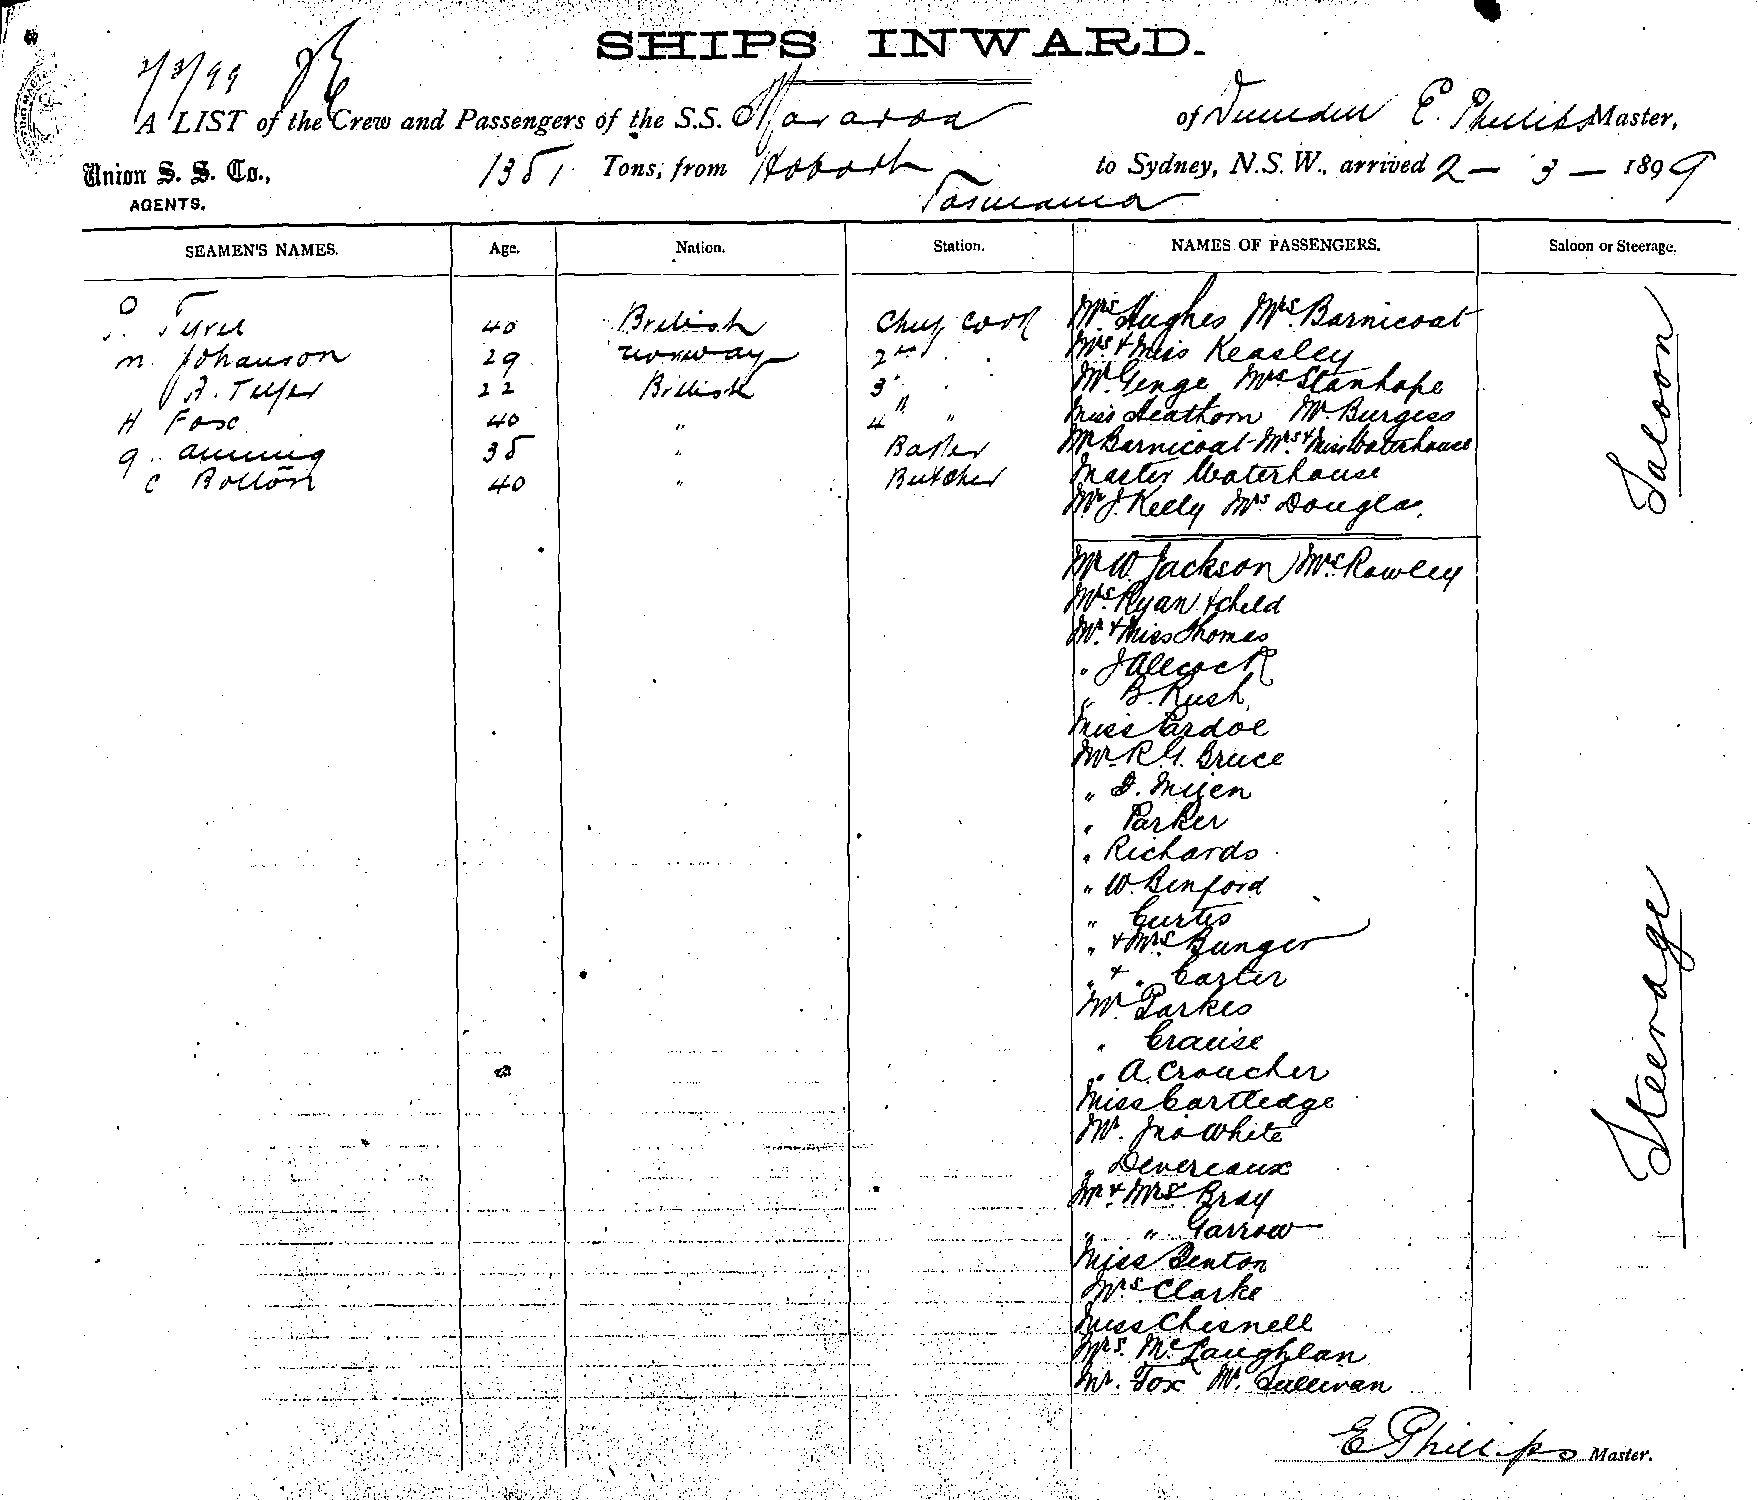 SHIPS INWARD.
2/3/99
A LIST of the Crew and Passengers of the S.S. Mararoa of Dunedin E. Phillips Master,
Union S. S. Co., 1381 Tons, from Hobart to Sydney, N.S.W., arrived 2 - 3 - 1899
AGENTS. Tasmania
SEAMEN'S NAMES. Age. Nation. Station. NAMES OF PASSENGERS. Saloon or Steerage.
40 British Chief Cook Mrs. Hughes Mrs. Barnicoat
N. Johanson 29 Norway 2nd " Mrs. & Miss Keasley
A. Telfer 22 British 3 " Mr. Genge Mrs Stanhope
H Fox 40 " 4 " Miss Heathorn Mr Burgess
35 " Baker Mr Barnicoat Mrs & Miss Waterhouse
C Bolton 40 " Butcher Master Waterhouse
Mr J. Kelly Mrs Douglas
Saloon
Mr W. Jackson Mrs. Rowley
Mrs. Ryan & child
Mr. & Miss Thomas
" J Allcock
" B. Rush
Miss Pardoe
Mr. R. G. Bruce
" Parker
" Richards
" W. Binford
" Curtis
" & Mrs Bunger
" & " Carter
Mr Parkes
" Crause
" A. Croucher
Miss Cartledge
Mr. Jno White
" Devereaux
Mr & Mrs Bray
" " Garrow
Miss Benton
Mrs Clarke
Miss Chisnell
Mrs. McLaughlan
Mr. Fox Mr. Sullivan
Steerage
E Phillips Master.